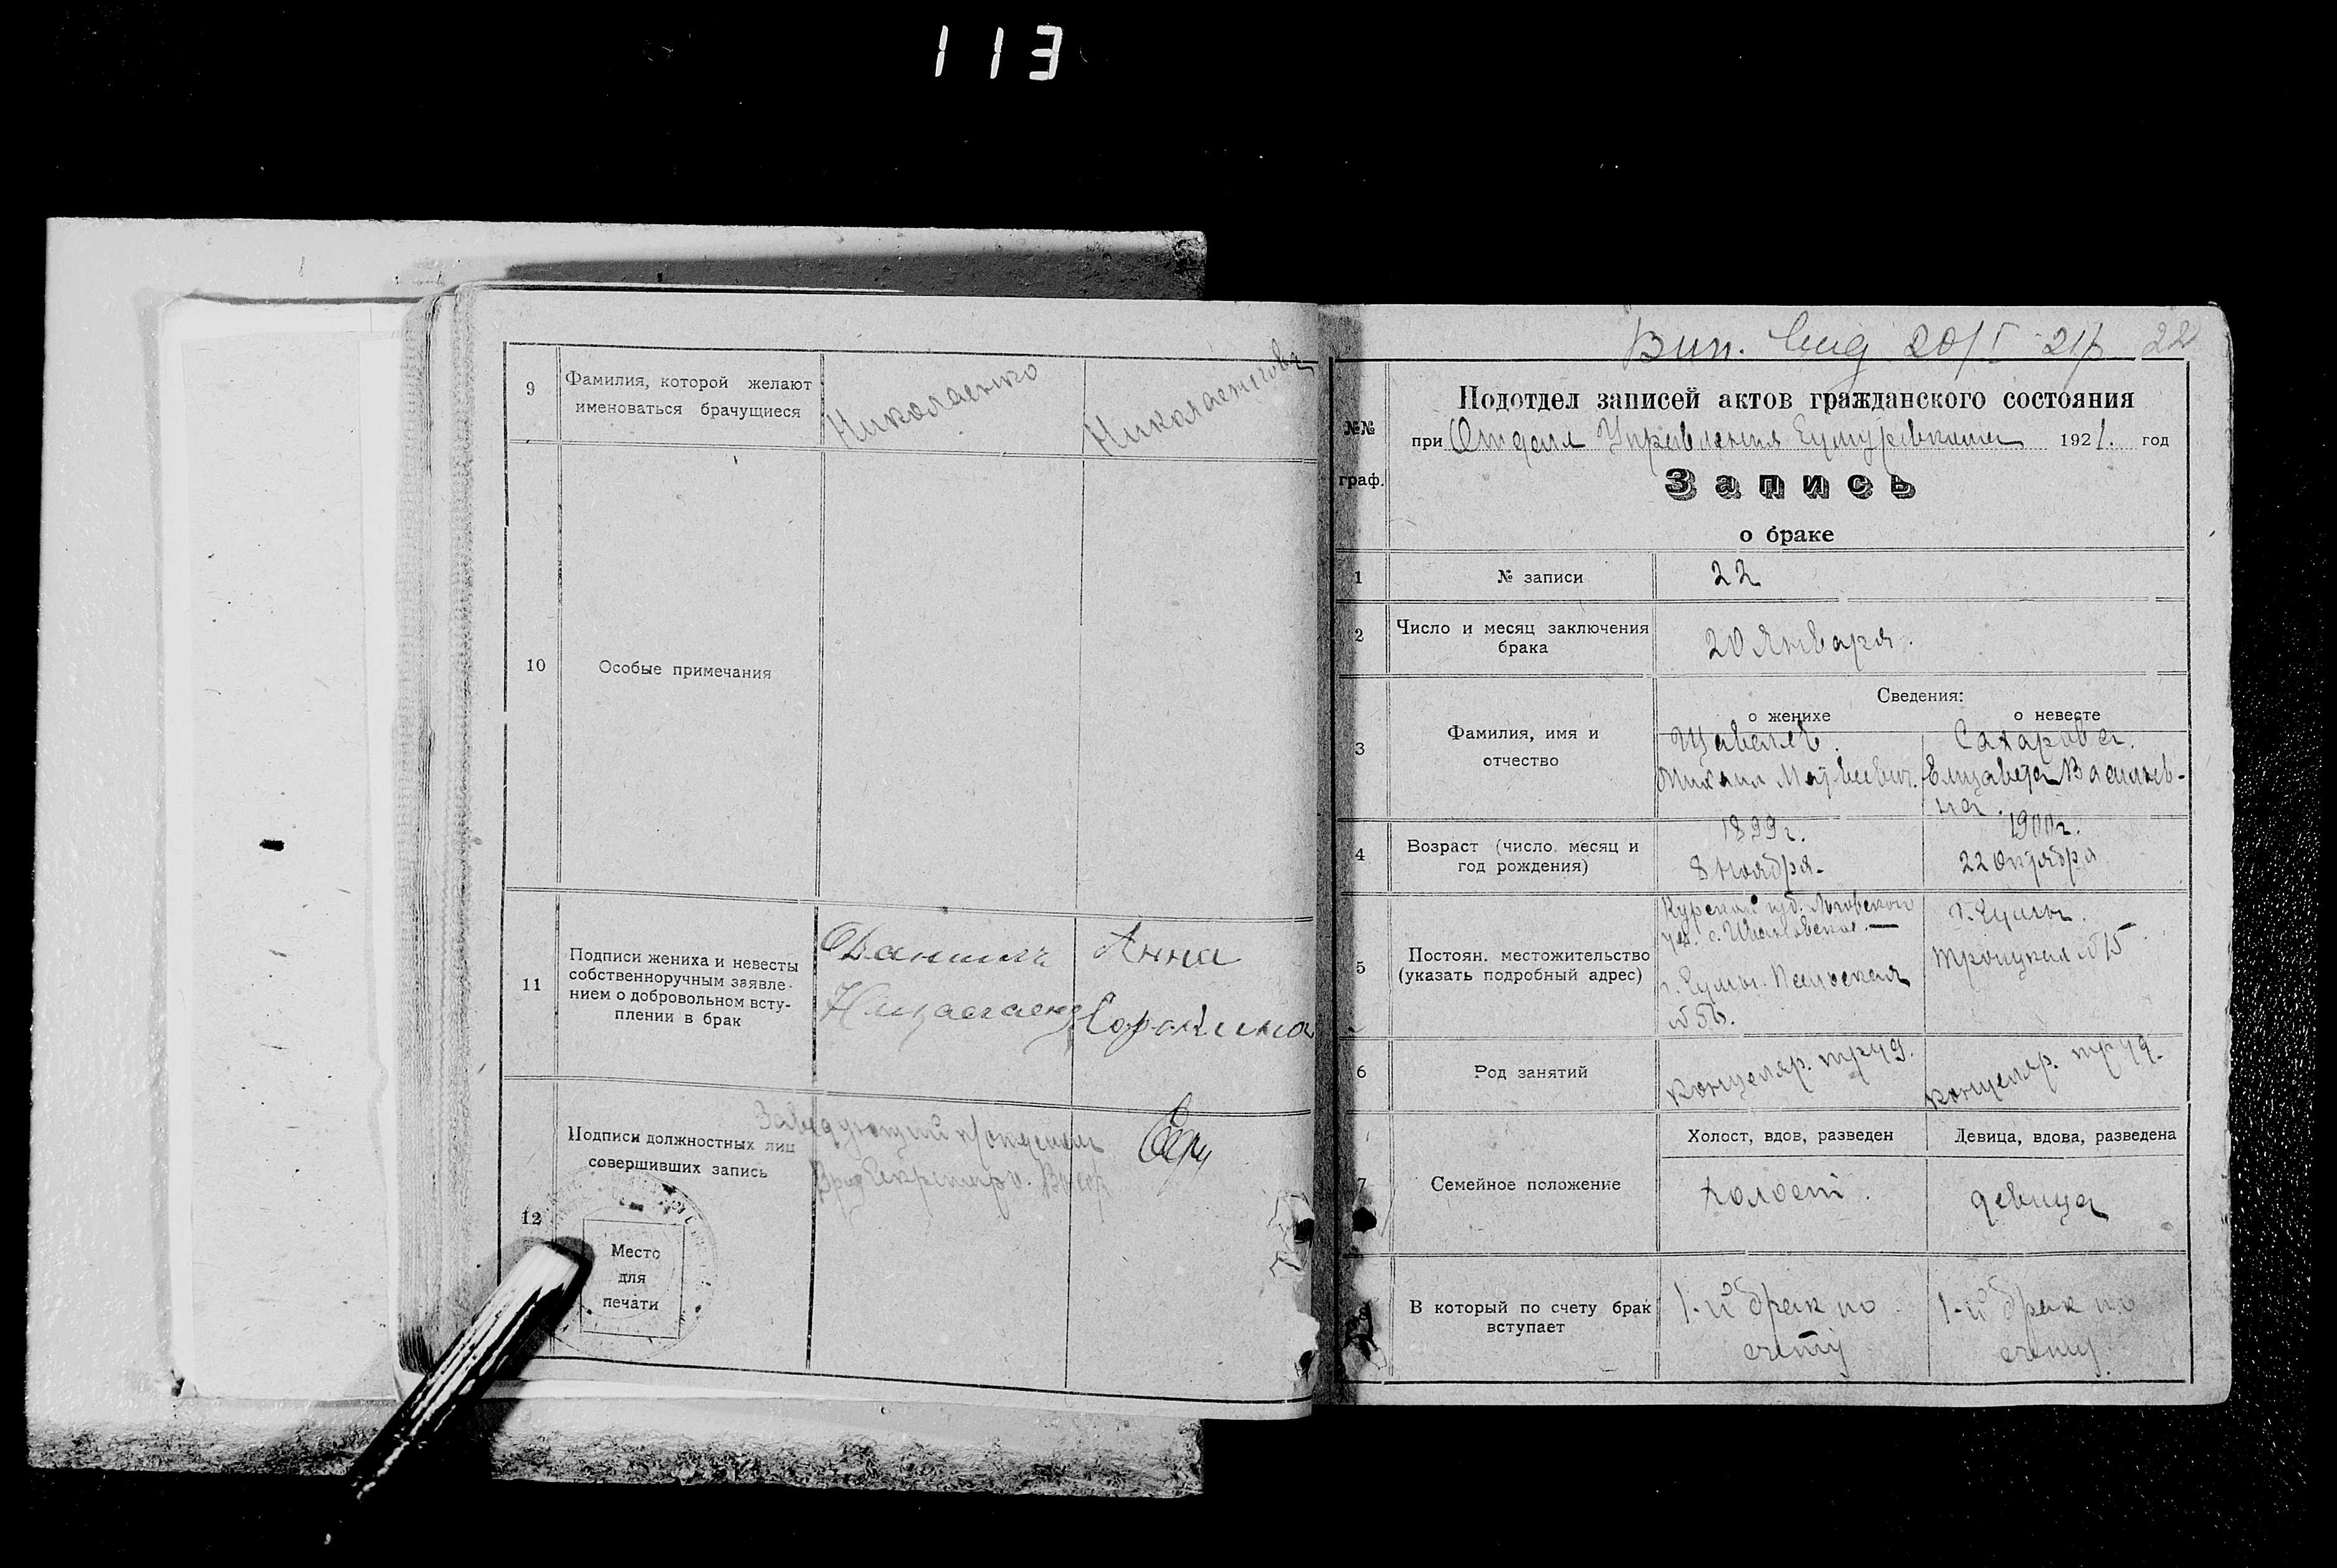 113
9
Фамилия, которой желают
именоваться брачущиеся
Николаенко
Николаенкова
10
Особые примечания
11
Подписи жениха и невесты
собственноручным заявле-
нием о добровольном всту-
плении в брак
Даниил
Анна
Сорокина
12
Подписи должностных лиц
совершивших запись
Заведующий п/отделом
Секретарь
Место
для
печати
Вып. 20/I 21 г. 22
№№
граф.
Подотдел записей актов гражданского состояния
при Отделе Управления 1921. год
Запись
о браке
1
№ записи
22
2
Число и месяц заключения
брака
20 Января.
Сведения:
о женихе
о невесте
3
Фамилия, имя и
отчество
Щавелев.
Михаил Матвеевич.
Сахарова.
Елизавета Васильев-
на.
4
Возраст (число, месяц и
год рождения)
1899 г.
8 Ноября.
1900 г.
22 Октября
5
Постоян. местожительство
(указать подробный адрес)
Курской губ. Льговской
уез. с.
г. Сумы.
№ 56.
г. Сумы.
Троицкая № 15
6
Род занятий
канцеляр. труд.
канцеляр. труд.
7
Семейное положение
Холост, вдов, разведен
Девица, вдова, разведена
холост.
девица
В который по счету брак
вступает
1-й брак по
счету
1-й брак по
счету.